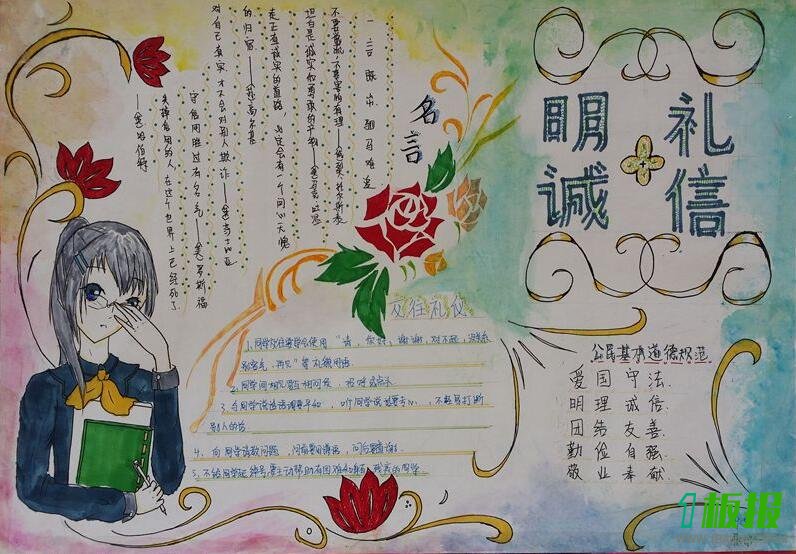 明礼
诚信
名言
一言既出驷马难追
坦白是诚实和勇敢的产物——
走正直诚实的道路,必定会有一个问心无愧
的归宿——高尔基
对自己真实,才不会对别人欺诈——莎士比亚
守信用胜过有名气——美罗斯福
失掉信用的人,在这个世界上已经死了
——哈伯特
交往礼仪
1.同学交往要学会使用“请,你好,谢谢,对不起,没关系
别客气,再见”等礼貌用语
2.同学间相见应相问候,招呼或点头
3.与同学说话语调要平和,听同学说话要专心,不轻易打断
别人的话
4、向同学请教问题,问前要用请语,问后要道谢
5、不给同学起绰号,要主动帮助有困难和有残疾的同学
公民基本道德规范
爱国守法
明理诚信
团结友善
勤俭自强
敬业奉献
1板报